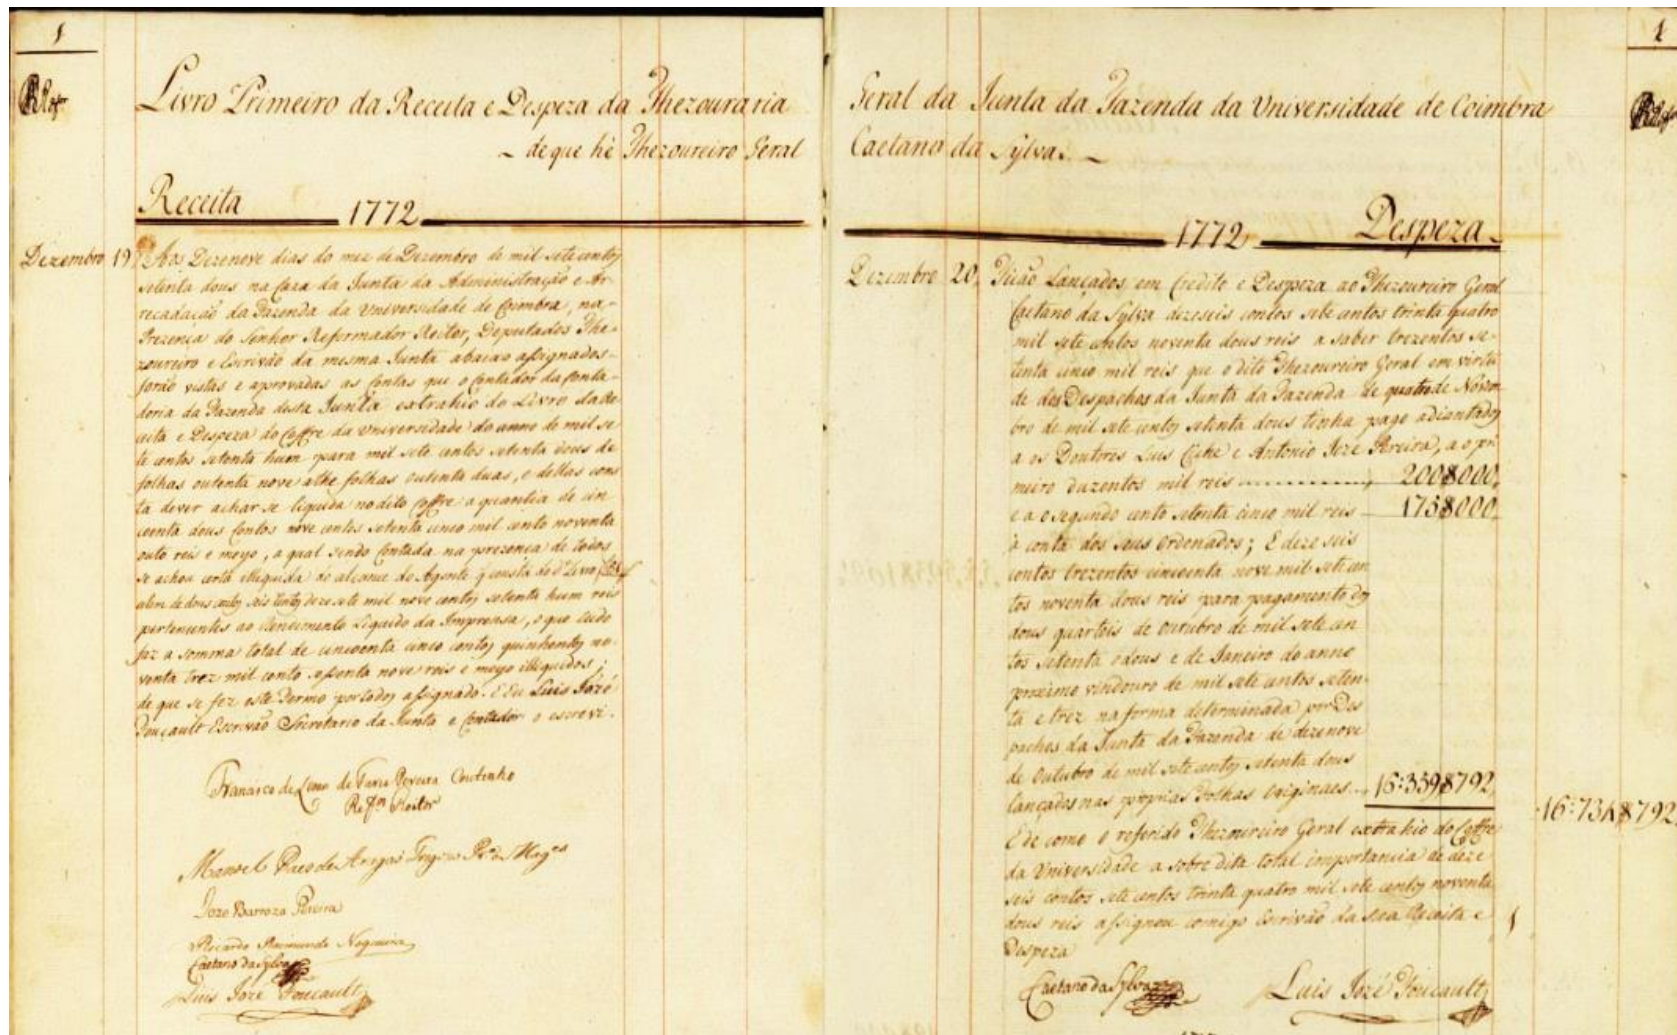 1
Livro Primeiro da Receita e Despeza da Thezouraria
de que hè Thezoureiro Geral
Receita 1772
Dezembro 19 Aos Dezenove dias do mez de Dezembro de mil sete centos
setenta dous na Caza da Junta da Administração e Ar-
recadação da Fazenda da Universidade de Coimbra, na
Prezença do Senhor Reformador Reitor, Deputados The-
zoureiro e Escrivão da mesma Junta abaixo assignados
forão vistas e aprovadas as Contas que o Contador da Conta-
doria da Fazenda desta Junta extrahio do Livro da Re
ceita e Despeza do Coffre da Universidade do anno de mil se
te centos setenta hum para mil sete centos setenta dous de
folhas outenta nove athe folhas outenta duas, e dellas cons
ta dever achar se liquida no dito Coffre a quantia de cin
coenta dous Contos nove centos setenta cinco mil cento noventa
outo reis e meyo, a qual sendo Contada na prezença de todos
se achou certa illiquida do alcance do Agente q consta do dº Livro
alem de dous contos seis centos dezesete mil nove centos setenta hum reis
pertencentes ao Rendimento Liquido da Imprensa, o que tudo
faz a somma total de cincoenta cinco contos quinhentos no
venta trez mil cento sessenta nove reis e meyo illiquidos;
de que se fez este Termo por todos assignado. E Eu Luis Jozé
Foucault Escrivão Secretario da Junta e Contador o escrevi.
Francisco de Lemos de Faria Pereira Coutinho
Refor Reitor
Manoel Paes de Aragão Trigozo
Joze Barroza Pereira
Ricardo Raimundo Nogueira
Caetano da Sylva
Luis Joze Foucault
1
Geral da Junta da Fazenda da Universidade de Coimbra
Caetano da Sylva.
1772 Despeza
Dezembro 20 Ficão Lançados em Credito e Despeza ao Thezoureiro Geral
Caetano da Sylva dezeseis contos sete centos trinta quatro
mil sete centos noventa dous reis a saber trezentos se-
tenta cinco mil reis que o dito Thezoureiro Geral em virtu
de dos Despachos da Junta da Fazenda de quatro de Novem
bro de mil sete centos setenta dous tinha pago adiantados
a os Doutores Luis Cichi e Antonio Joze Pereira, a o pri
meiro duzentos mil reis 200$000
e a o segundo cento setenta cinco mil reis 175$000
à conta dos seus Ordenados; E dezeseis
contos trezentos cincoenta nove mil sete cen
tos noventa dous reis para pagamento dos
dous quarteis de Outubro de mil sete cen
tos setenta e dous e de Janeiro do anno
proximo vindouro de mil sete centos seten
ta e trez na forma determinada por Des
pachos da Junta da Fazenda de dezenove
de Outubro de mil sete centos setenta dous
lançados nas proprias Folhas Originaes 16:359$792 16:734$792
E de como o referido Thezoureiro Geral extrahio do Coffre
da Universidade a sobre dita total importancia de deze
seis contos sete centos trinta quatro mil sete centos noventa
dous reis assignou comigo Escrivão da sua Receita e
Despeza
Caetano da Sylva Luis Jozé Foucault